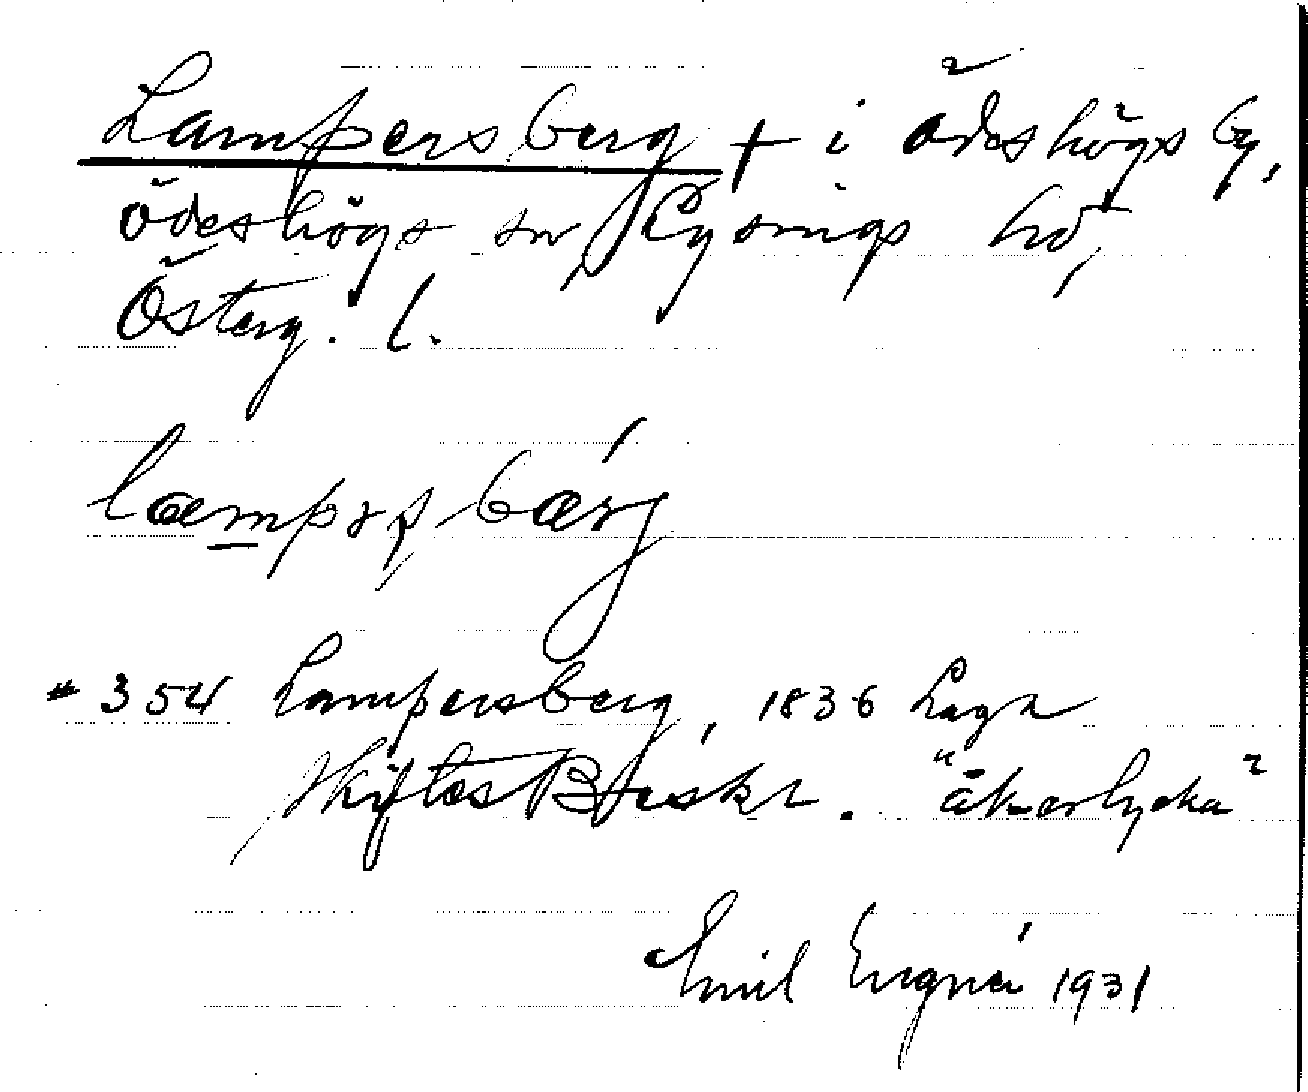 Lampersberg + i Ödeshögs by,
Ödeshögs sn, Lysings hd,
Österg. l.
læmpərsbærj
354 Lampersberg, 1836 Laga
Skiftes Beskr. "åkerlycka"
Emil Engné 1931